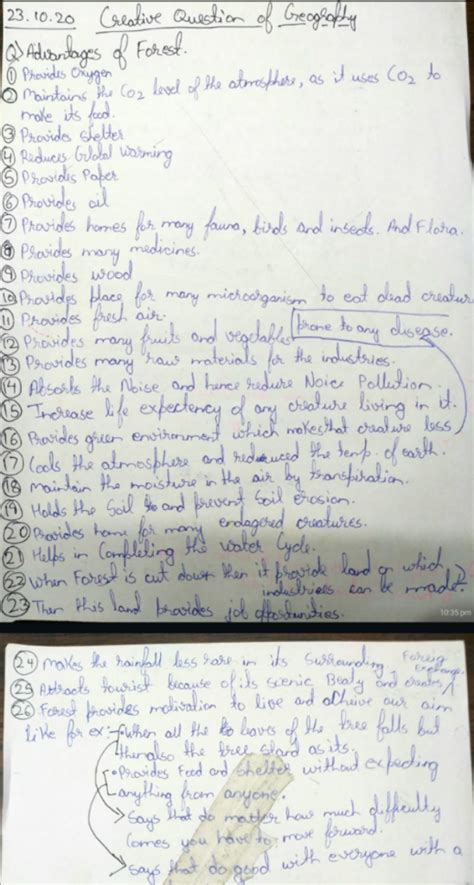 23.10.20 Creative Question of Geography
Q) Advantages of Forest.
① Provides Oxygen
② Maintains the CO2 level of the atmosphere, as it uses CO2 to
make its food.
③ Provides shelter
④ Reduces Global warming
⑤ Provides Paper
⑥ Provides oil
⑦ Provides homes for many fauna, birds and insects. And Flora.
⑧ Provides many medicines.
⑨ Provides wood
⑩ Provides place for many microorganism to eat dead creature
⑪ Provides fresh air.
⑫ Provides many fruits and vegetables prone to any disease.
⑬ Provides many raw materials for the industries.
⑭ Absorbs the Noise and hence reduce Noice Pollution.
⑮ Increase life expectency of any creature living in it.
⑯ Provides green environment which makes that creature less
⑰ Cools the atmosphere and reduced the temp. of earth.
⑱ Maintain the moisture in the air by transpiration.
⑲ Holds the Soil and prevent Soil erosion.
⑳ Provides home for many endagered creatures.
㉑ Helps in Completing the Water Cycle.
㉒ When Forest is cut down then it provide land on which
industries can be made.
㉓ Then this land provides job opportunities.
10:35 pm
㉔ Makes the rainfall less rare in its surrounding. Foreign
㉕ Attracts tourist because of its scenic Beaty and creates exchange.
㉖ Forest provides motivation to live and achieve our aim
like for ex:- • when all the leaves of the tree falls but
then also the tree stand as its.
• Provides Food and Shelter without expecting
anything from anyone.
Says that do matter how much difficulty
Comes you have to move forward.
says that do good with everyone with a